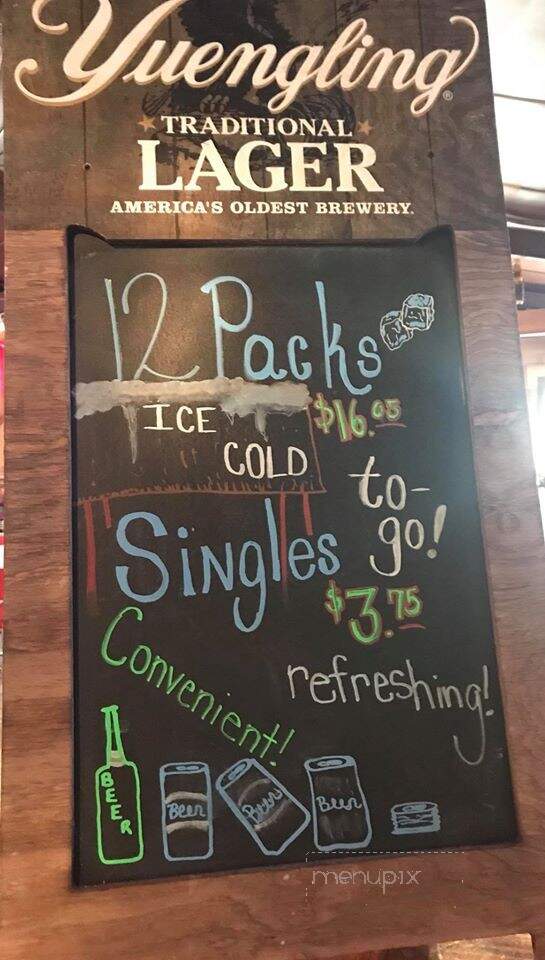 Yuengling®
TRADITIONAL
LAGER
AMERICA'S OLDEST BREWERY.
12 Packs
ICE
COLD
$16.05
to-
go!
Singles
$3.75
Convenient!
refreshing!
BEER
Beer
Beer
Beer
menupix